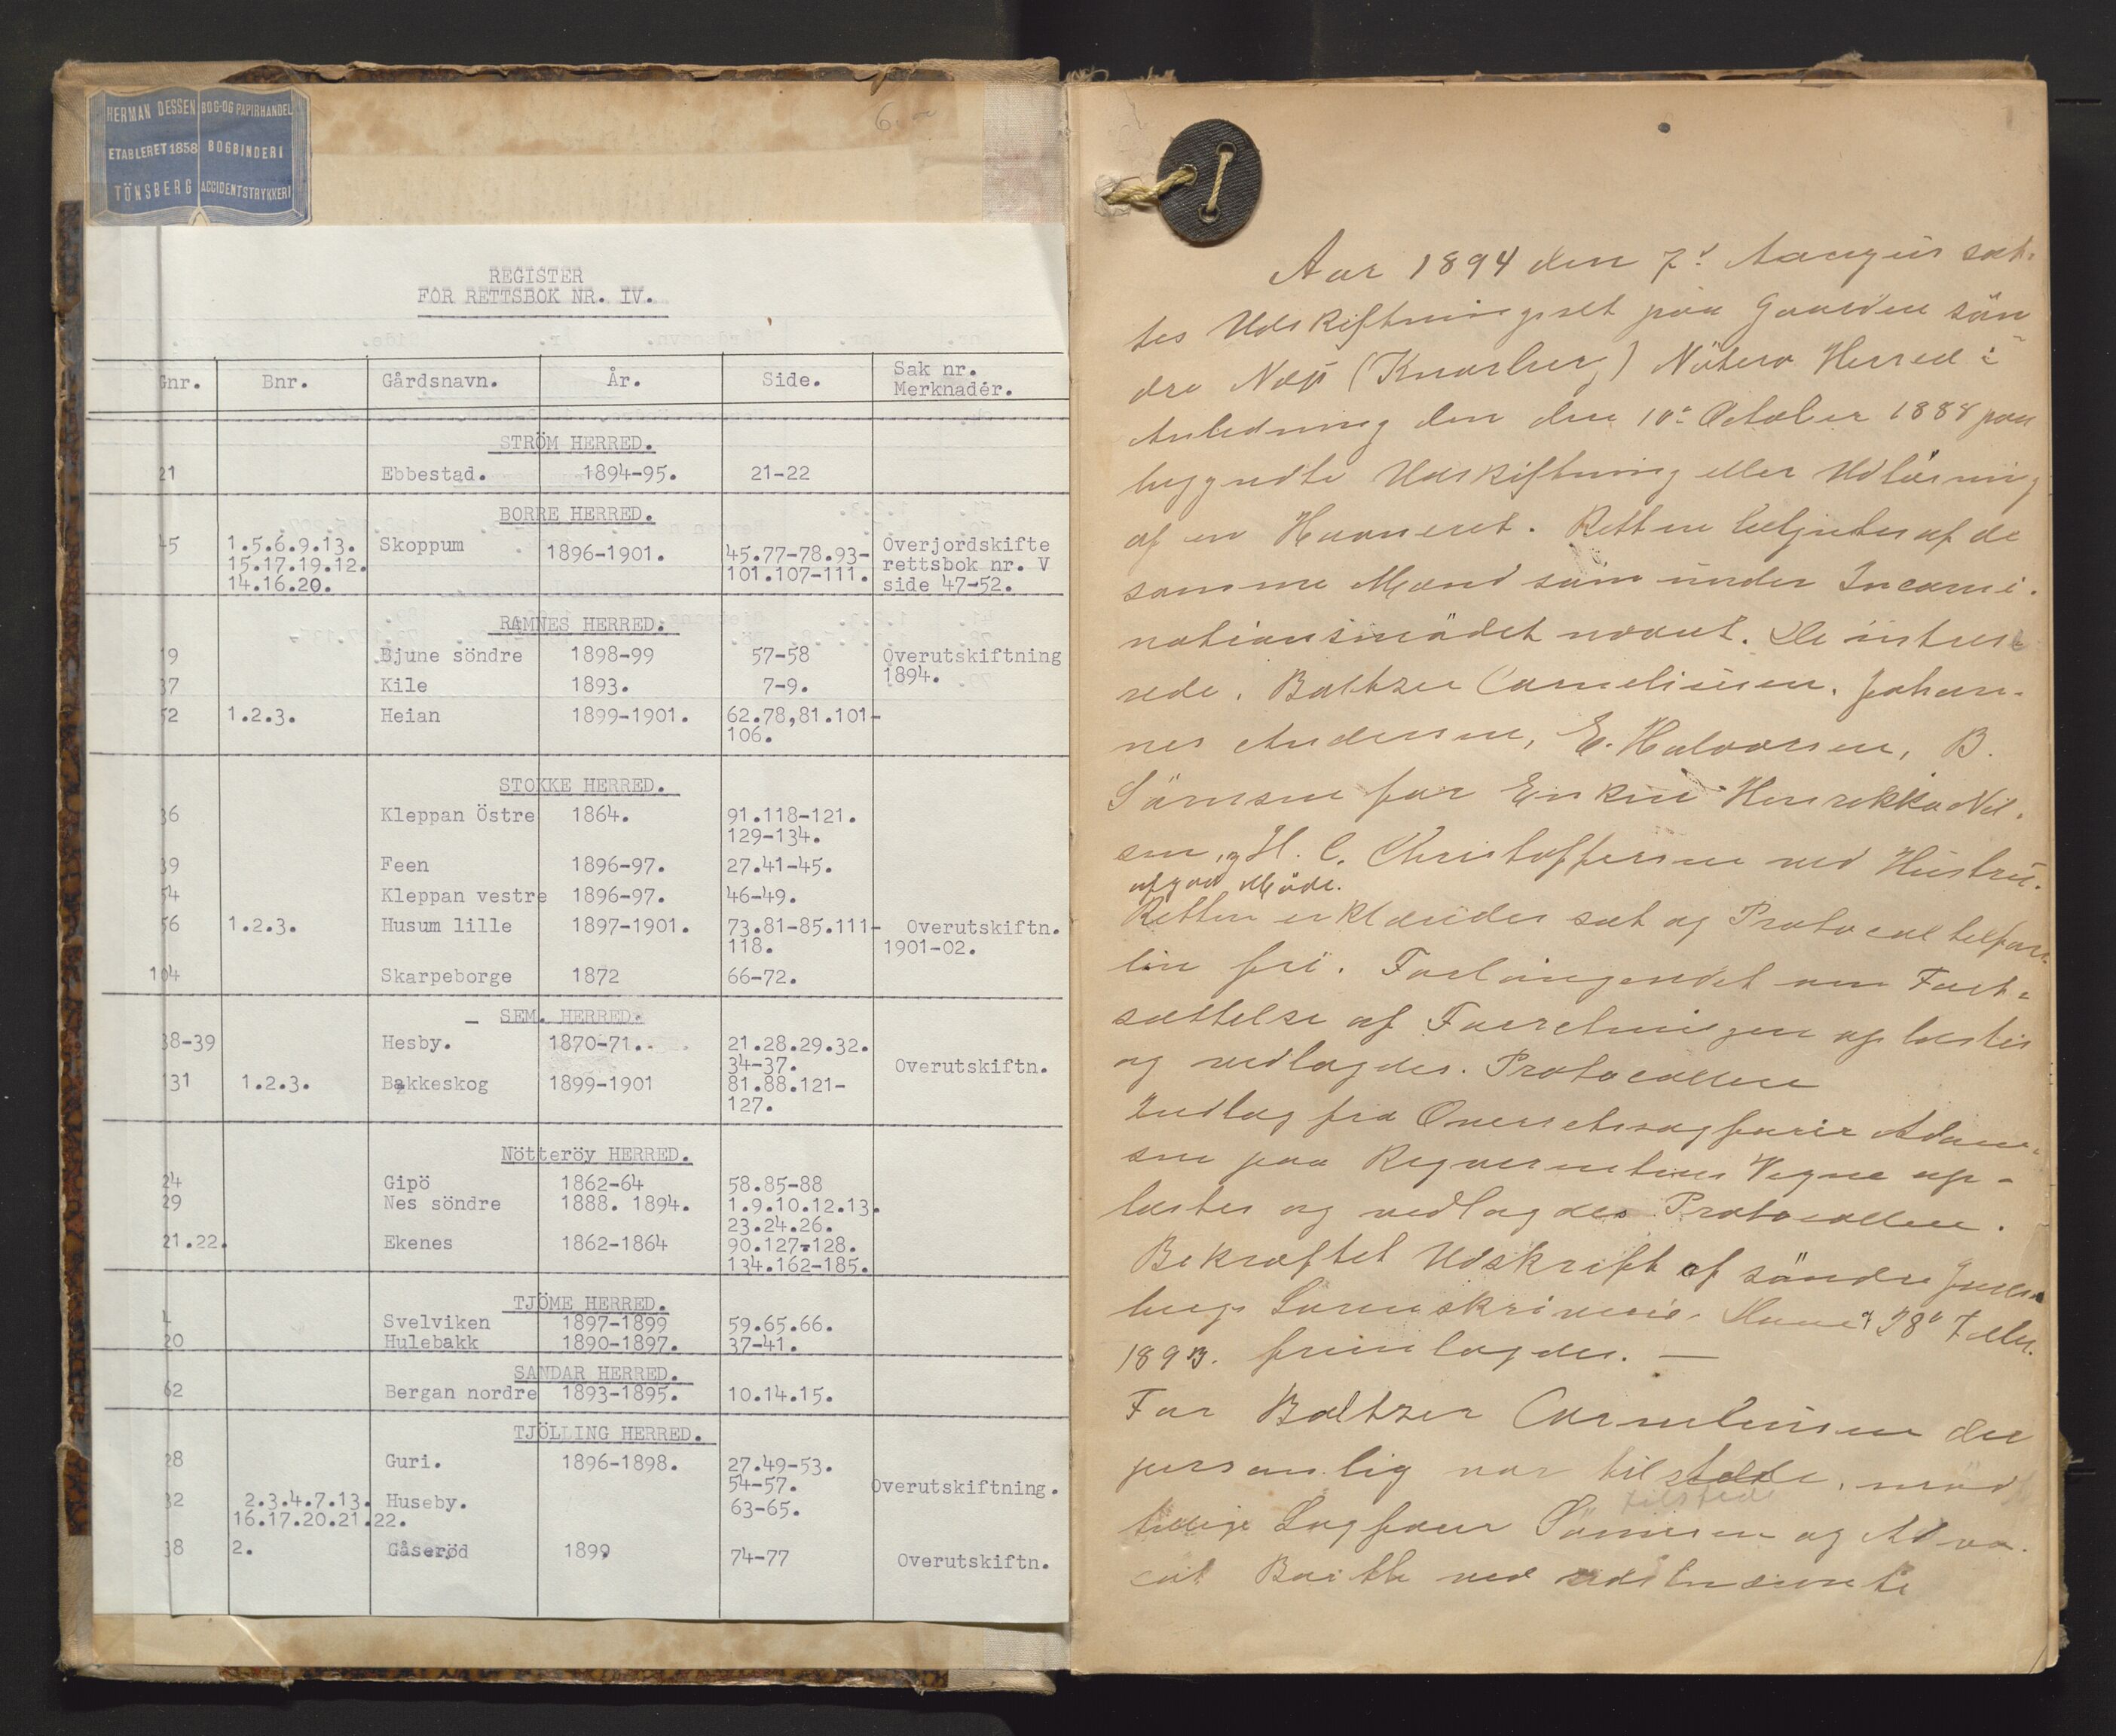 HERMAN DESSEN BOG-OG PAPIRHANDEL
ETABLERET 1858 BOGBINDERI
TÖNSBERG ACCIDENTSTRYKKERI
6.
REGISTER
FOR RETTSBOK NR. IV.
Gnr. Bnr. Gårdsnavn. År. Side. Sak nr.
Merknader.
STRÖM HERRED.
21 Ebbestad. 1894-95. 21-22
BORRE HERRED.
45 1.5.6.9.13. Skoppum 1896-1901. 45.77-78.93- Overjordskifte
15.17.19.12. 101.107-111. rettsbok nr. V
14.16.20. side 47-52.
RAMNES HERRED.
19 Bjune söndre 1898-99 57-58 Overutskiftning
1894.
37 Kile 1893. 7-9.
52 1.2.3. Heian 1899-1901. 62.78,81.101-
106.
STOKKE HERRED.
36 Kleppan Östre 1864. 91.118-121.
129-134.
39 Feen 1896-97. 27.41-45.
54 Kleppan vestre 1896-97. 46-49.
56 1.2.3. Husum lille 1897-1901. 73.81-85.111- Overutskiftn.
118. 1901-02.
104 Skarpeborge 1872 66-72.
SEM. HERRED.
38-39 Hesby. 1870-71. 21.28.29.32.
34-37. Overutskiftn.
131 1.2.3. Bakkeskog 1899-1901 81.88.121-
127.
Nötteröy HERRED.
24 Gipö 1862-64 58.85-88
29 Nes söndre 1888. 1894. 1.9.10.12.13.
23.24.26.
21.22. Ekenes 1862-1864 90.127-128.
134.162-185.
TJÖME HERRED.
4 Svelviken 1897-1899 59.65.66.
20 Hulebakk 1890-1897. 37-41.
SANDAR HERRED.
62 Bergan nordre 1893-1895. 10.14.15.
TJÖLLING HERRED.
28 Guri. 1896-1898. 27.49-53.
54-57. Overutskiftning.
32 2.3.4.7.13. Huseby. 63-65.
16.17.20.21.22.
38 2. Gåseröd 1899 74-77 Overutskiftn.
1
Aar 1894 den 7d sat-
tes Udskiftningsret paa Gaarden sön
dre Næs (Knarberg) Nöterö Herred i
Anledning den den 10de October 1888 paa
begyndte Udskiftning eller Udlösning
af en Havneret. Retten betjentes af de
samme Mænd som under Incami-
nationsmödet nævnt. De intres-
rede, Baltzer Corneliusen, Johan-
nes Andersen, E. Halvorsen, B.
Sörensen for Enken Henrikka Niel-
sen, og H. C. Christoffersen ved Hustru.
afgav Möde.
Retten erklæredes sat og Protocol tilför-
len fri. Forlangendet om Fort-
sættelse af Forretningen oplæstes
og vedlagdes Protocollen
Indlæg fra Overretssagförer Adam-
sen paa Reqvirentens Vegne op-
læstes og vedlagdes Protocollen.
Bekræftet Udskrift af söndre Jarls-
bergs Sorenskriveri 28de Febr.
1893. fremlagdes. —
For Baltzer Corneliusen der
personlig var tilstede, möd
tillige Sagförer Sörensen og Advo-
tilstede
cat